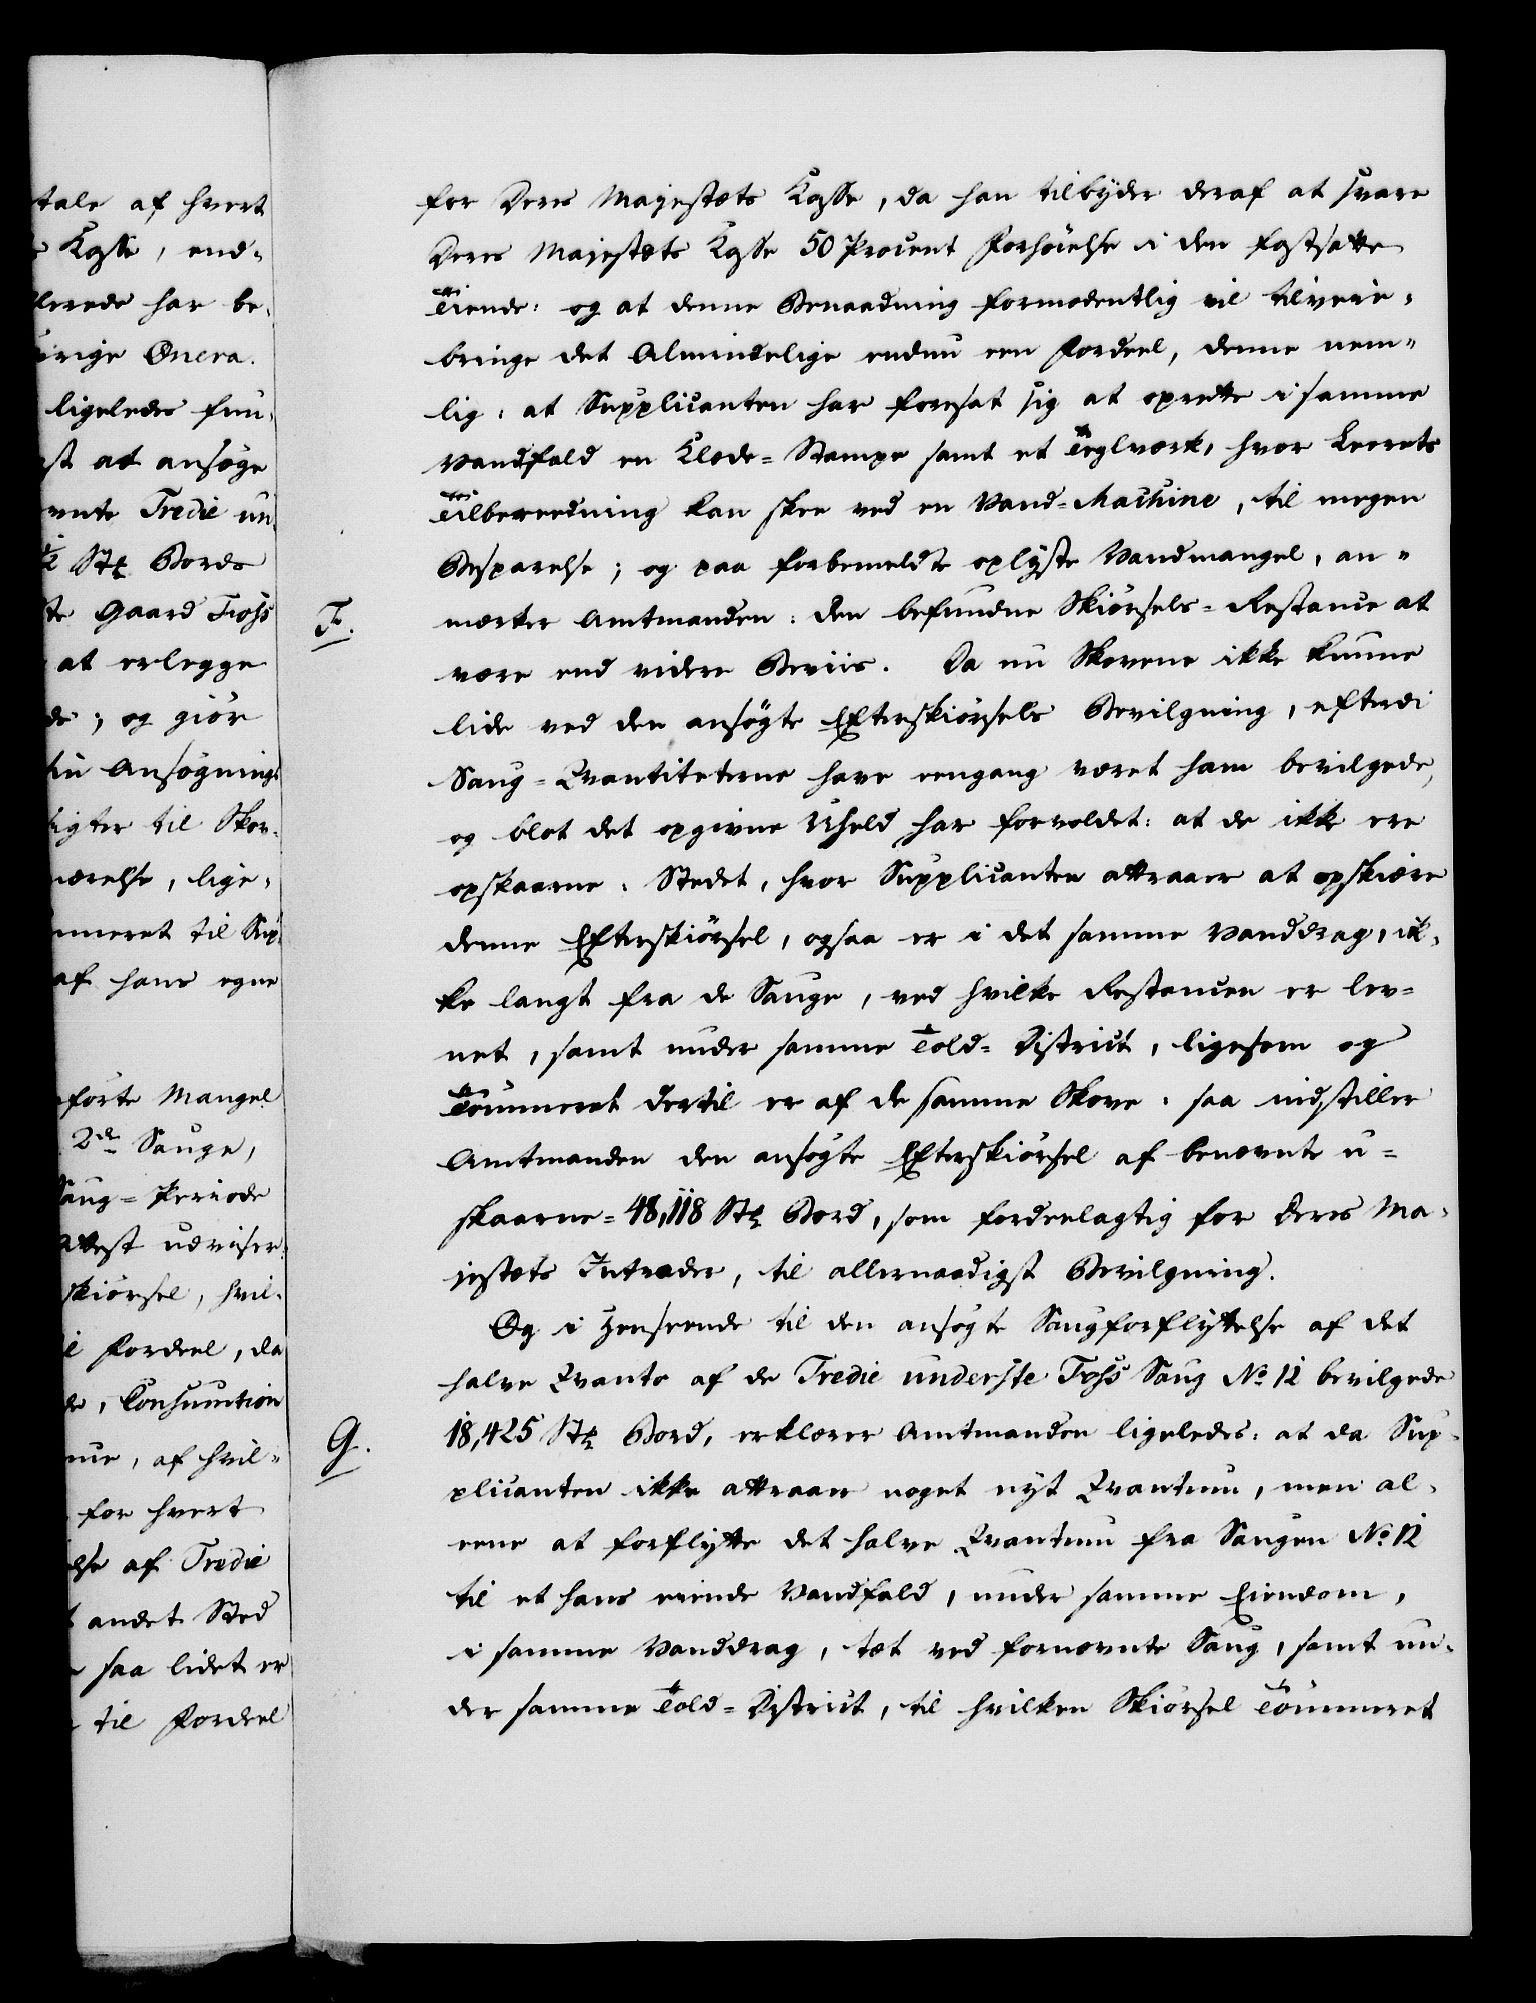 tale af hvert
Kasse, end-
lerede har be-
vrige Onera.
ligeledes fun-
st at ansøge
vnte Tredie un
½ Stk Bords
te Gaard Foss
at erlegge
de; og giör
Ansøgnings
ligter til Skov-
værelse, lige-
mmeret til Sup-
af hans egne
förte Mangel
2de Sauge,
Saug-Periode
Attest udviser
skiörsel, hvil-
Fordeel, da
de, Consumtion
nue, af hvil-
for hvert
lse af Tredie
andet Sted
saa lidet er
til Fordeel
for Deres Majestets Kasse, da han tilbyder deraf at svare
Deres Majestets Kasse 50 Procent Forhöielse i den fastsatte
Tiende: og at denne Benaadning formodentlig vil tilveie-
bringe det Almindelige endnu een Fordeel, denne nem-
lig: at Supplicanten har foresat sig at oprette i samme
Vandfald en Klæde-Stampe samt et Teglværk, hvor Leerets
Tilberedning kan skee ved en Vand-Machine, til megen
Besparelse; og paa forbemeldte oplyste Vandmangel, an-
F. mærker Amtmanden: den befundne Skiörsels-Restance at
være end videre Beviis. Da nu Skovene ikke kunne
lide ved den ansögte Efterskiörsels Bevilgning, efterdi
Saug-Qvantiteterne have eengang været ham bevilgede,
og blot det opgivne Uheld har forvoldet: at de ikke ere
opskaarne: Stedet, hvor Supplicanten attraaer at opskiære
denne Efterskiörsel, ogsaa er i det samme Vanddrag, ik-
ke langt fra de Sauge, ved hvilke Restancen er lev-
net, samt under samme Told-District, ligesom og
Tömmeret dertil er af de samme Skove: saa indstiller
Amtmanden den ansögte Efterskiörsel af benævnte u-
skaarne=48,118 Stk Bord, som fordeelagtig for Deres Ma-
jestets Intrader, til allernaadigst Bevilgning.
Og i Henseende til den ansögte Saugforflyttelse af det
halve Qvanto af de Tredie underste Foss Saug No 12 bevilgede
G. 18,425 Stk Bord, erklærer Amtmanden ligeledes: at da Sup-
plicanten ikke attraaer noget nyt Qvantum, men al-
eene at forflytte det halve Qvantum fra Saugen No 12
til et hans eiende Vandfald, under samme Eiendom,
i samme Vanddrag, tæt ved fornævnte Saug, samt un-
der samme Told-District, til hvilken Skiörsel Tömmeret